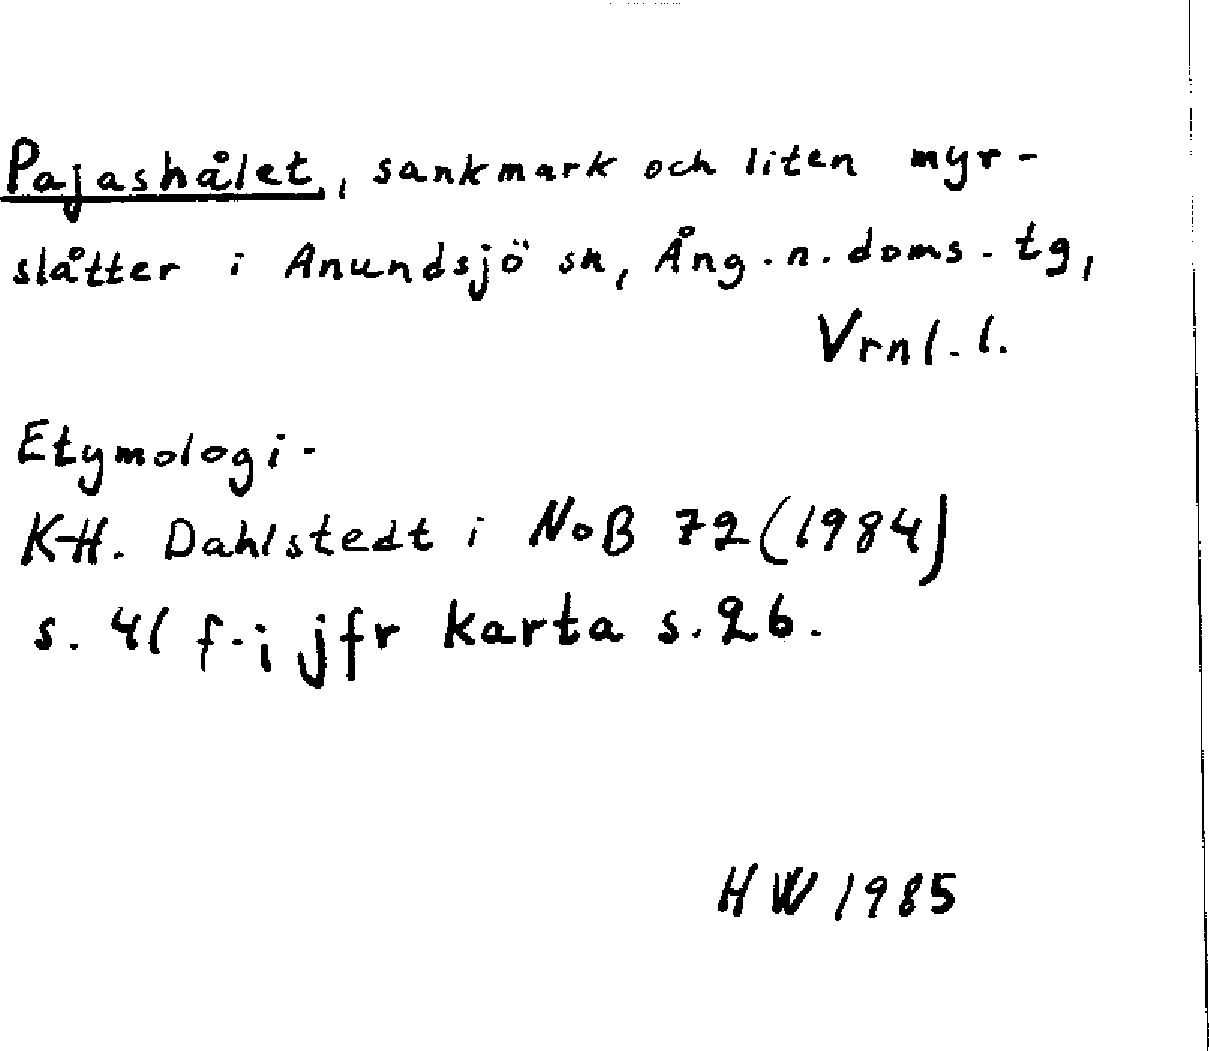 Pajashålet, sankmark och liten myr-
slåtter i Anundsjö sn, Ång. n. doms. tg,
Vrnl. l.
Etymologi.
K-H. Dahlstedt i NoB 72 (1984)
s. 41 f.; jfr karta s. 26.
HW 1985